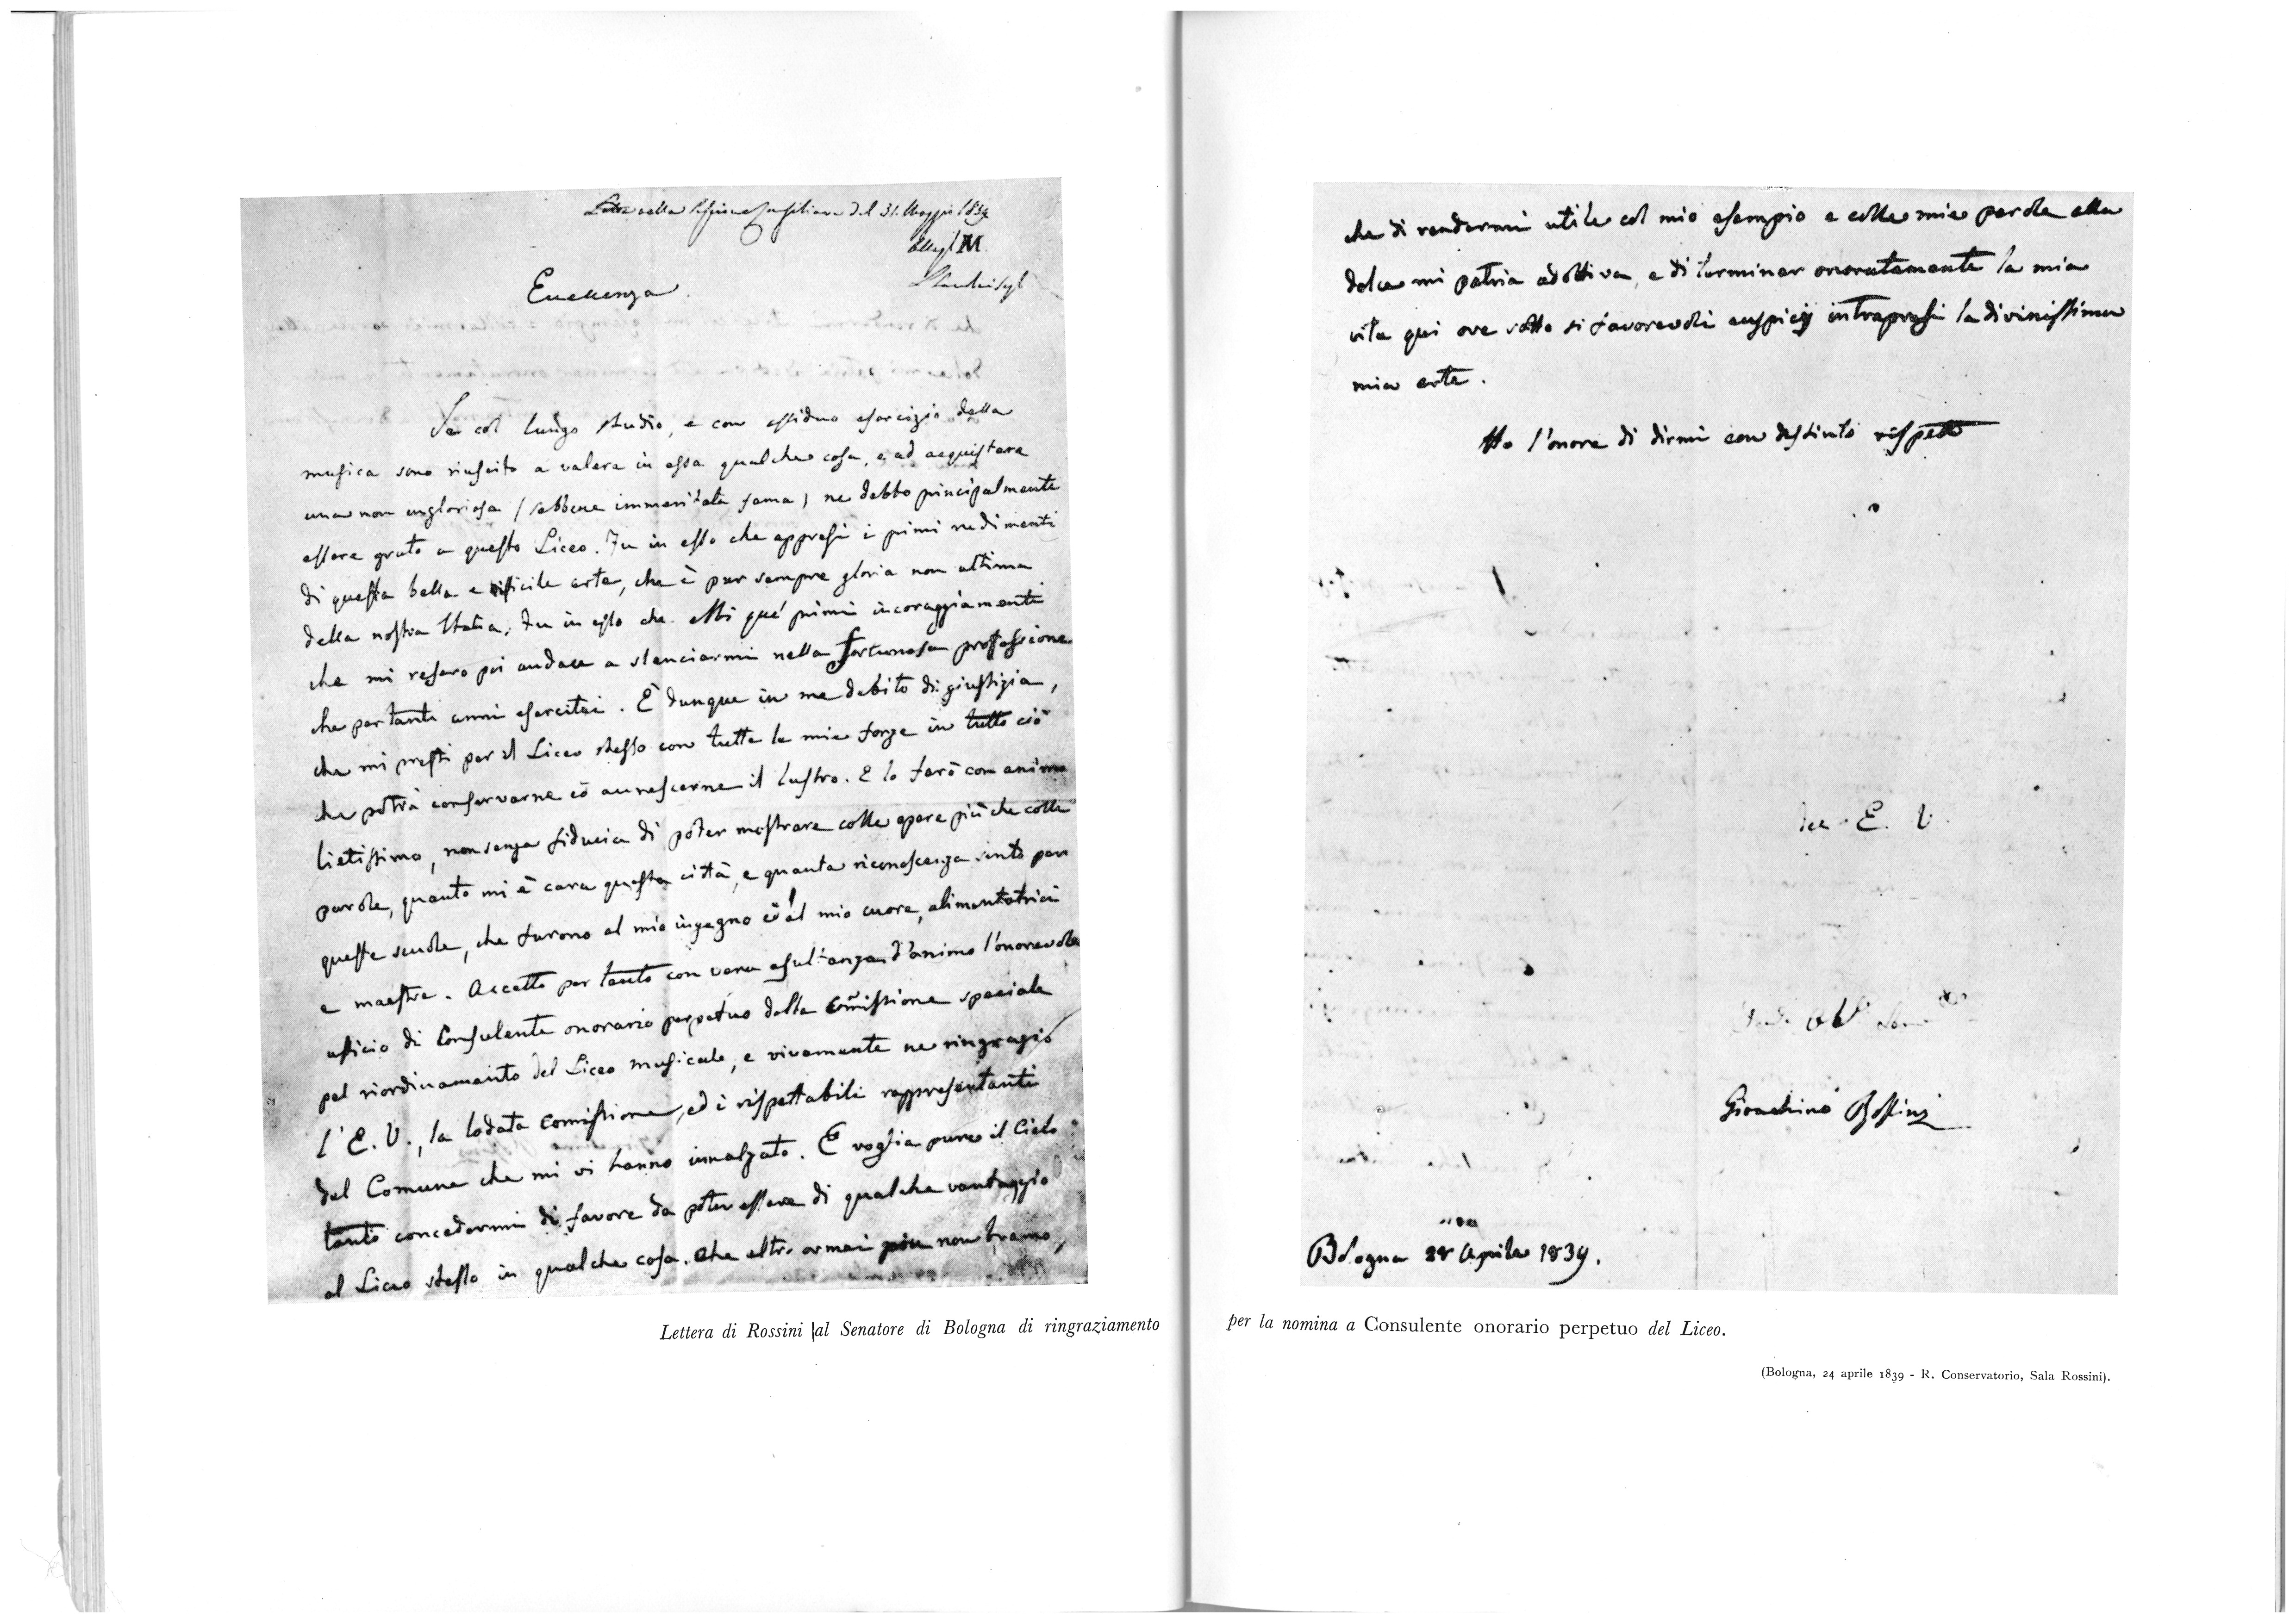 Letta nella Sessione Consigliare del 31. Maggio 1839
Alleg. M.
Eccellenza
Se col lungo studio, e con assiduo esercizio della
musica sono riuscito a valere in essa qualche cosa, e ad acquistare
una non ingloriosa (sebbene immeritata fama) ne debbo principalmente
essere grato a questo Liceo. Fu in esso che appresi i primi rudimenti
di questa bella e difficile arte, che è pur sempre gloria non ultima
della nostra Italia; fu in esso che ebbi que' primi incoraggiamenti
che mi resero poi audace a slanciarmi nella fortunosa professione
che per tanti anni esercitai. È dunque in me debito di giustizia,
che mi presti per il Liceo stesso con tutte le mie forze in tutto ciò
che potrà conservarne ed accrescerne il lustro. E lo farò con animo
lietissimo, non senza fiducia di poter mostrare colle opere più che colle
parole, quanto mi è cara questa città, e quanta riconoscenza sento per
queste scuole, che furono al mio ingegno ed al mio cuore, alimentatrici
e maestre. Accetto per tanto con vera esultanza d'animo l'onorevole
officio di Consulente onorario perpetuo della Comissione speciale
pel riordinamento del Liceo musicale, e vivamente ne ringrazio
l'E. V., la lodata Comissione, ed i rispettabili rappresentanti
del Comune che mi vi hanno innalzato. E voglia pure il Cielo
tanto concedermi di favore da poter essere di qualche vantaggio
al Liceo stesso in qualche cosa. Che altro ormai più non bramo,
che di rendermi utile col mio esempio e colle mie parole alla
dolce mi patria adottiva, e di terminar onoratamente la mia
vita qui ove sotto sì favorevoli auspicij intrapresi la divinissima
mia arte.
Ho l'onore di dirmi con distinto rispetto
E. V.
Gioachino Rossini
Bologna Aprile 1839.
Lettera di Rossini al Senatore di Bologna di ringraziamento
per la nomina a Consulente onorario perpetuo del Liceo.
(Bologna, 24 aprile 1839 - R. Conservatorio, Sala Rossini).